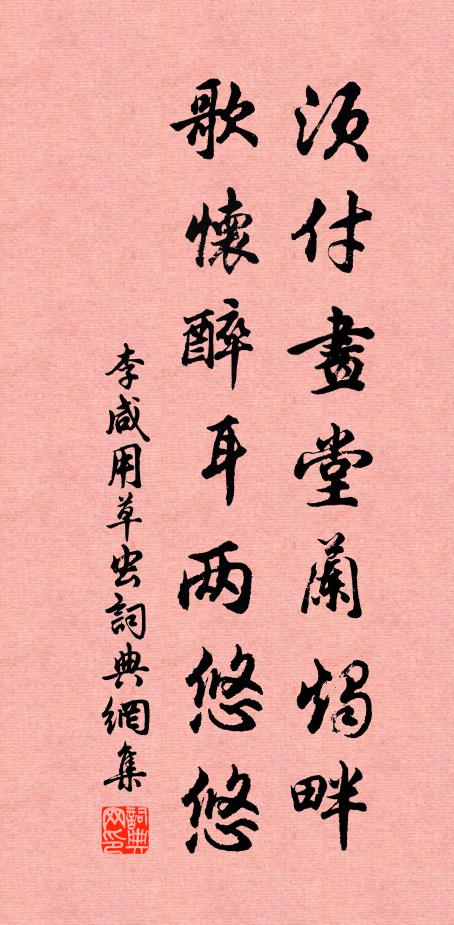 須付畫堂蘭燭畔
歌懷醉耳两悠悠
李咸用草虫詞典網集
詞典网印